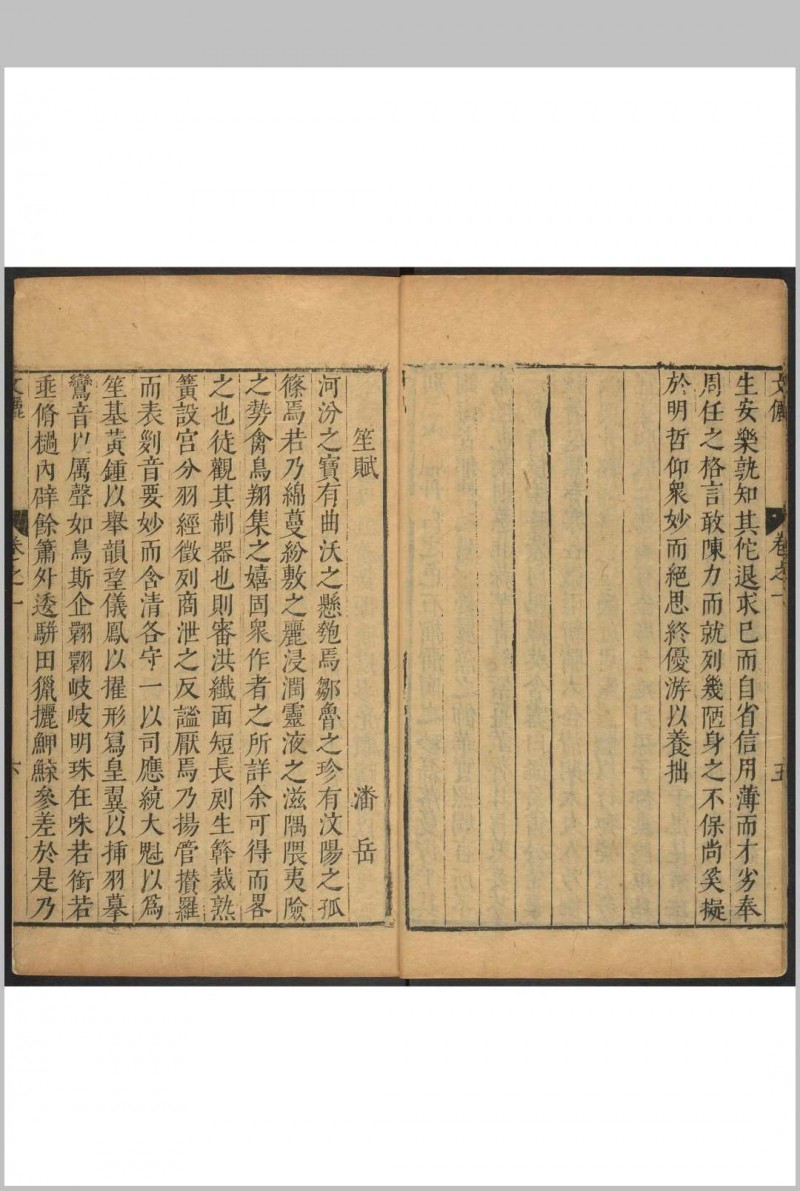 卷之一
五
生安樂孰知其佗退求已而自省信用薄而才劣奉
周任之格言敢陳力而就列幾陋身之不保尚奚擬
於明哲仰衆妙而絕思終優游以養拙
笙賦
潘岳
河汾之寶有曲沃之懸匏焉鄒魯之珍有汶陽之孤
篠焉若乃綿蔓紛敷之麗浸潤靈液之滋隅隈夷險
之勢禽鳥翔集之嬉固衆作者之所詳余可得而畧
之也徒觀其制器也則審洪纖面短長剫生簳裁熟
簧設宮分羽經徵列商泄之反謐厭焉乃揚管攢羅
而表列音要妙而含清各守一以司應統大魁以爲
笙基黃鍾以舉韻望儀鳳以擢形寫皇翼以揷羽摹
鸞音以厲聲如鳥斯企翾翾岐岐明珠在咮若銜若
垂脩檛內辟餘簫外逶駢田獵攦鯽鯵參差於是乃
卷之一
六